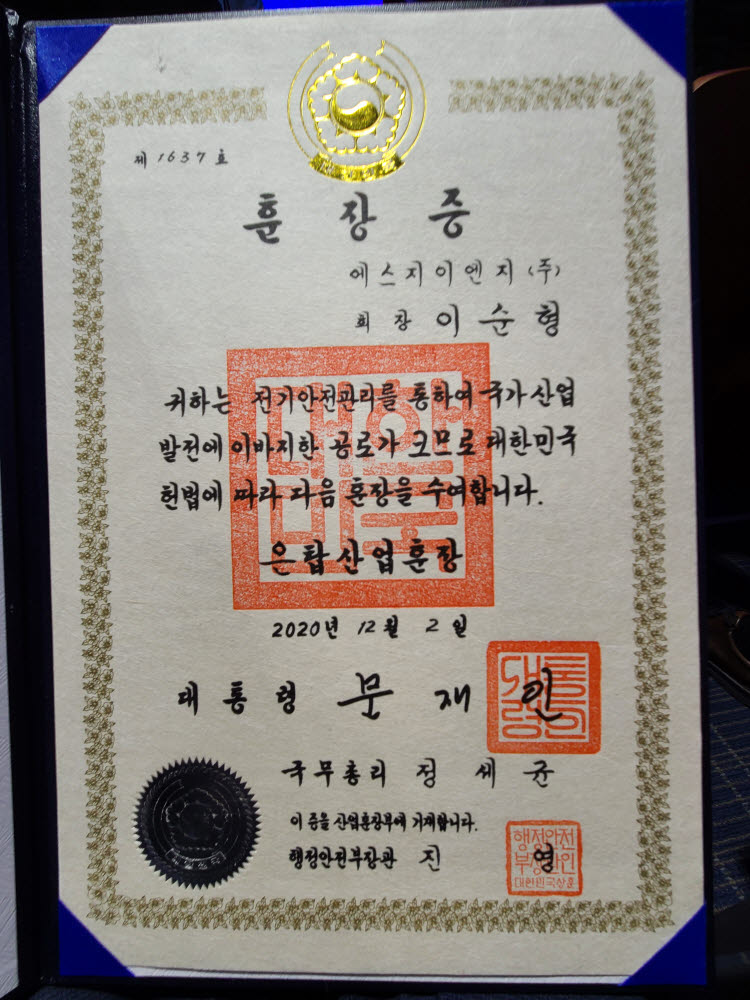 제 1637 호
훈장증
에스지이엔지(주)
회장 이순형
귀하는 전기안전관리를 통하여 국가산업
발전에 이바지한 공로가 크므로 대한민국
헌법에 따라 다음 훈장을 수여합니다.
은탑산업훈장
2020년 12월 2일
대통령 문재인
국무총리 정세균
이 증을 산업훈장부에 기재합니다.
행정안전부장관 진영
행정안전
부장관인
대한민국상훈